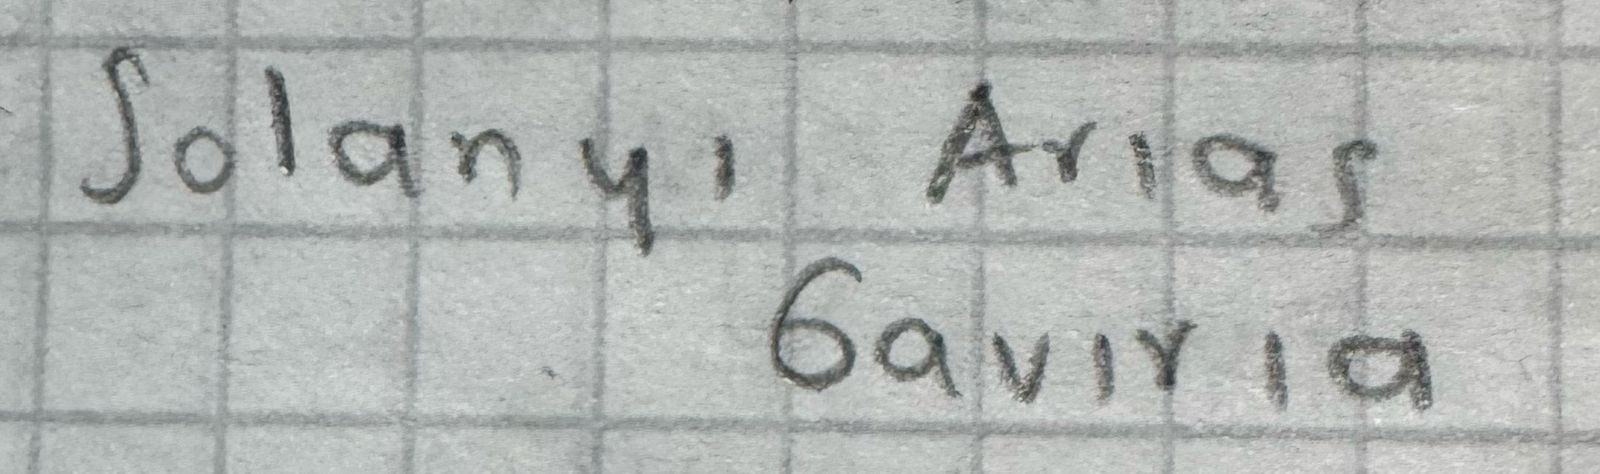 Solanyi Arias
Gaviria